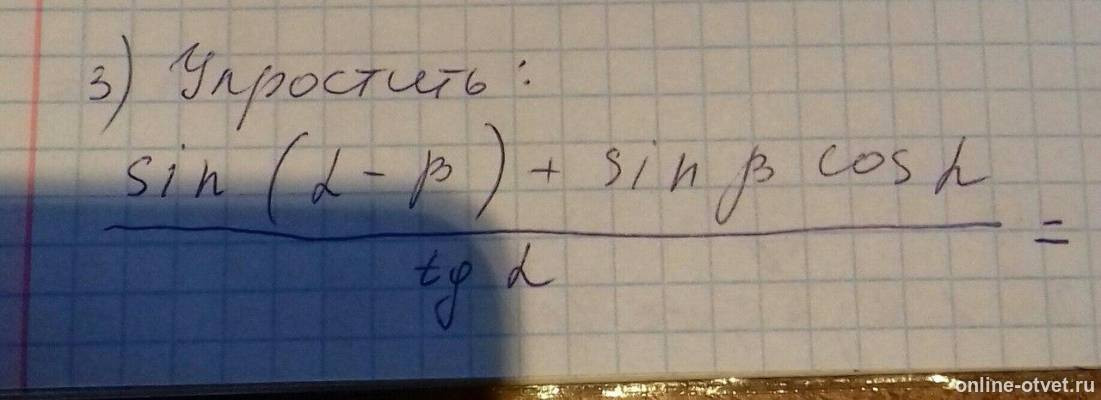 3) Упростить:
sin (α - β) + sin β cos α
=
tg α
online-otvet.ru